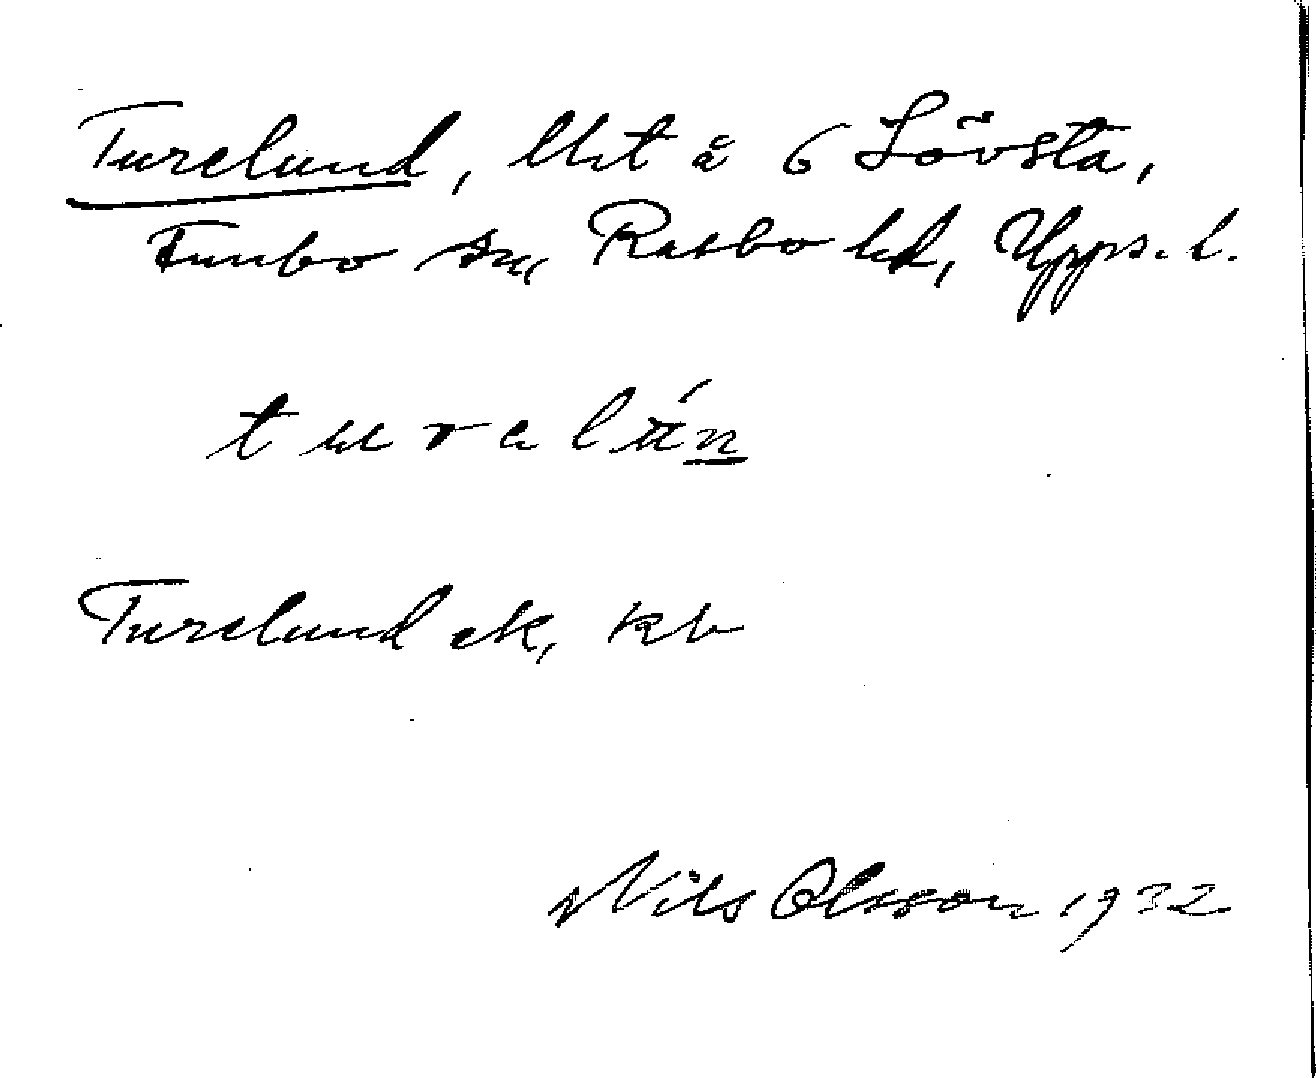 Turelund, lht å 6 Lövsta,
Funbo sn, Rasbo hd, Upps. l.
turelún
Turelund ek, kb
Nils Olsson 1932